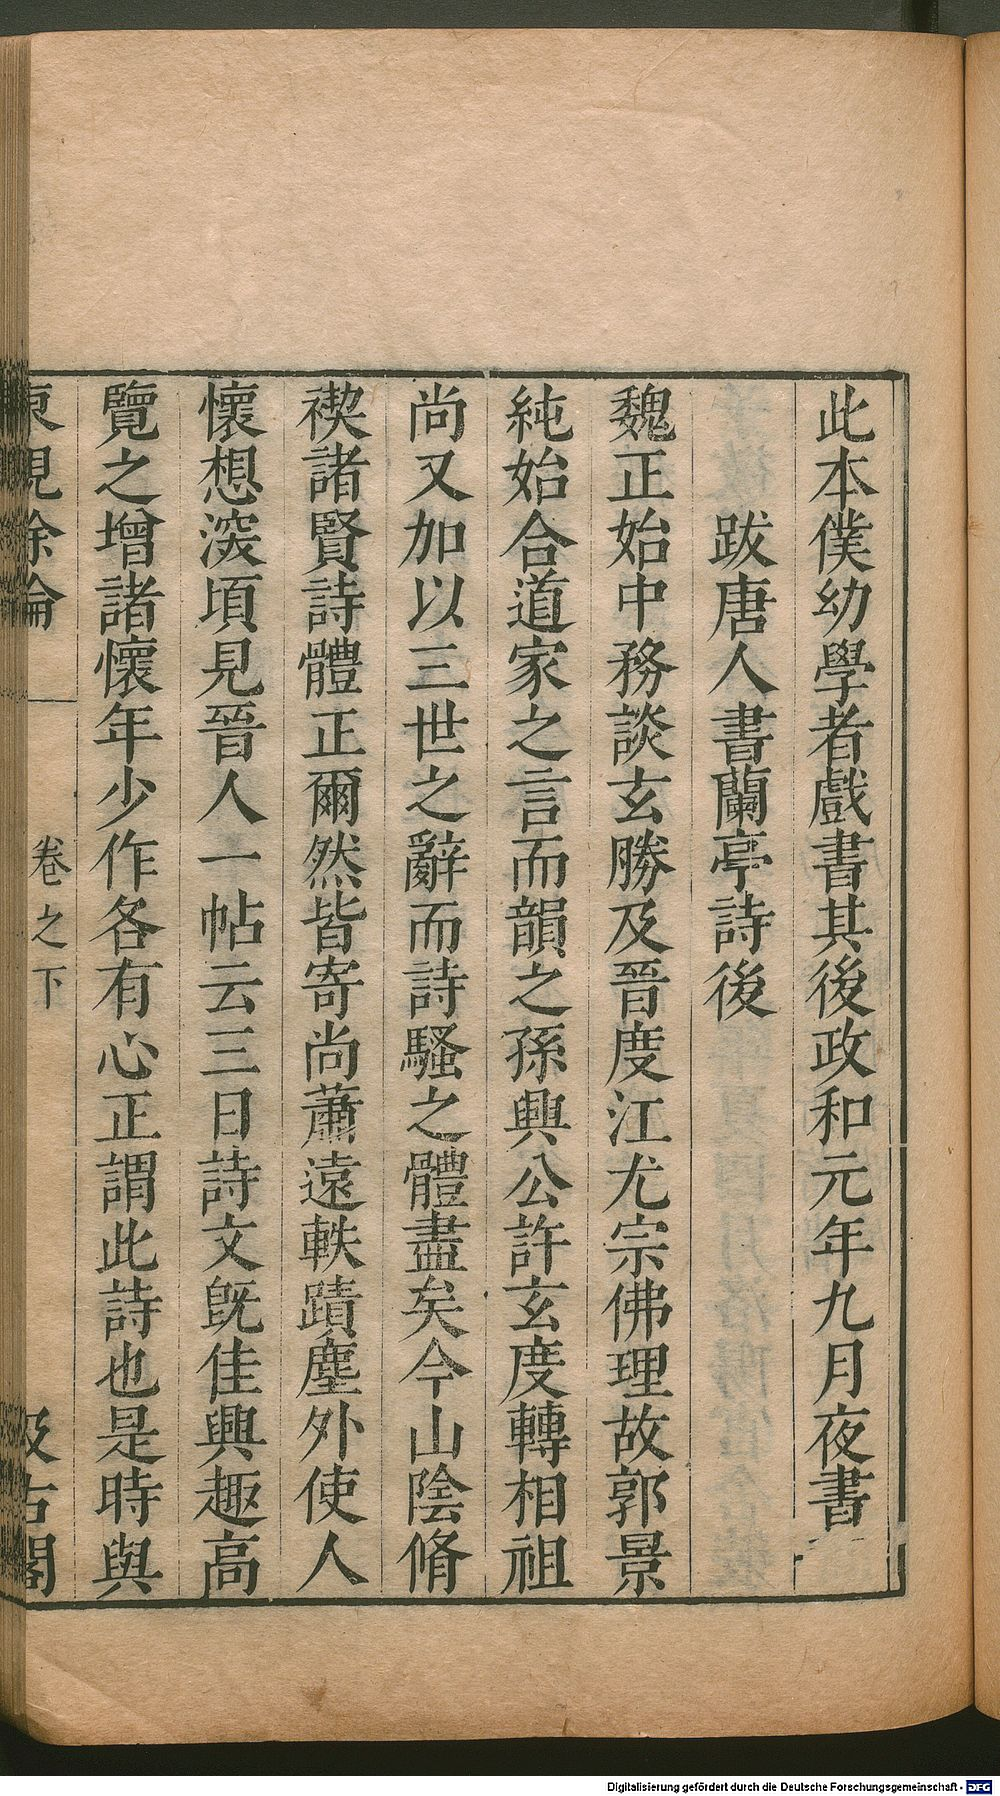 此本僕幼學者戲書其後政和元年九月夜書
跋唐人書蘭亭詩後
魏正始中務談玄勝及晉度江尤宗佛理故郭景
純始合道家之言而韻之孫興公許玄度轉相祖
尚又加以三世之辭而詩騷之體盡矣今山陰脩
禊諸賢詩體正爾然皆寄尚蕭遠軼蹟塵外使人
懷想深頃見晉人一帖云三日詩文旣佳興趣高
覽之增諸懷年少作各有心正謂此詩也是時與
東觀餘論
卷之下
汲古閣
Digitalisierung gefördert durch die Deutsche Forschungsgemeinschaft - DFG